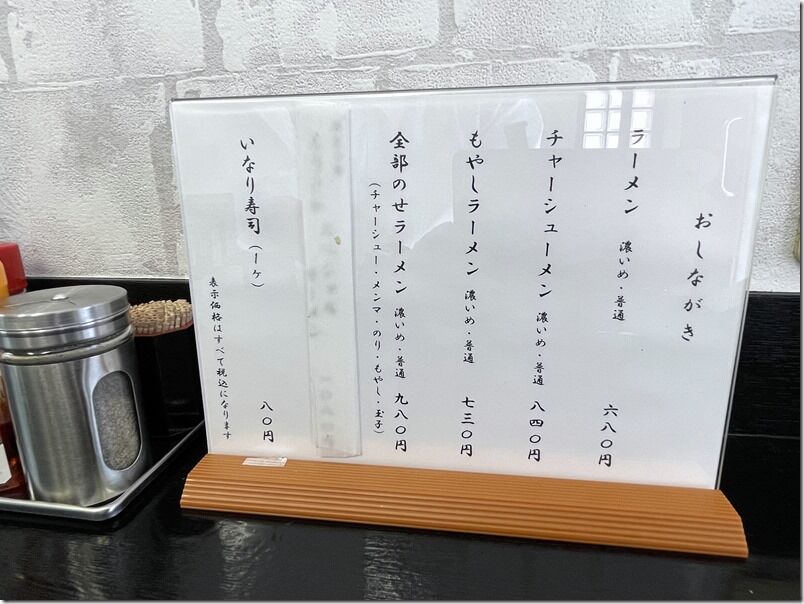 おしながき
ラーメン 濃いめ・普通 六八〇円
チャーシューメン 濃いめ・普通 八四〇円
もやしラーメン 濃いめ・普通 七三〇円
全部のせラーメン 濃いめ・普通 九八〇円
(チャーシュー・メンマ・のり・もやし・玉子)
いなり寿司(一ケ) 八〇円
表示価格はすべて税込になります